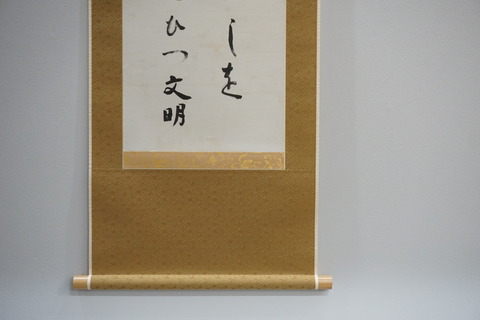 しを
ひつ文明